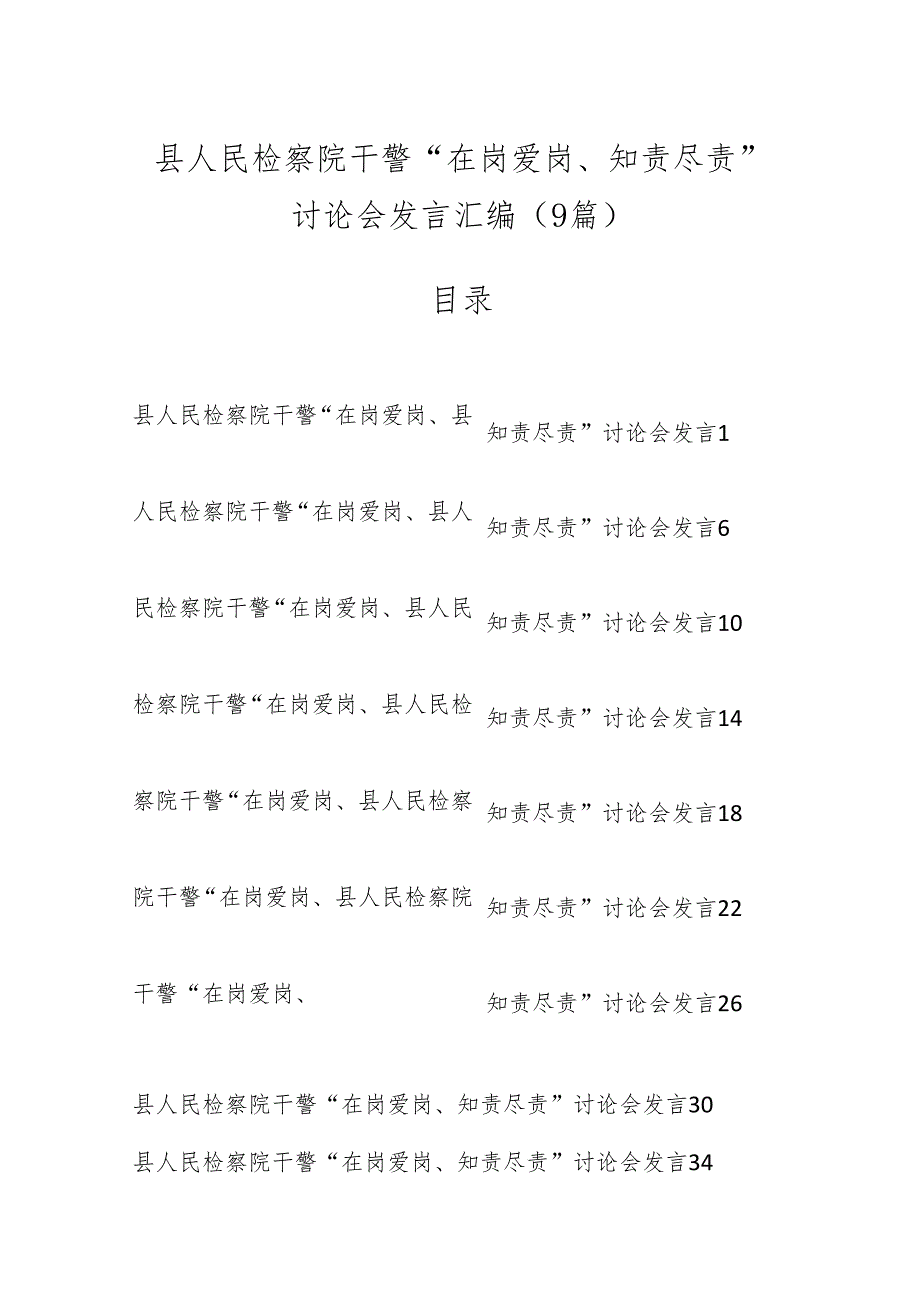 县人民检察院干警“在岗爱岗、知责尽责”
讨论会发言汇编（9篇）
目录
县人民检察院干警“在岗爱岗、县
知责尽责”讨论会发言1
人民检察院干警“在岗爱岗、县人
知责尽责”讨论会发言6
民检察院干警“在岗爱岗、县人民
知责尽责”讨论会发言10
检察院干警“在岗爱岗、县人民检
知责尽责”讨论会发言14
察院干警“在岗爱岗、县人民检察
知责尽责”讨论会发言18
院干警“在岗爱岗、县人民检察院
知责尽责”讨论会发言22
干警“在岗爱岗、
知责尽责”讨论会发言26
县人民检察院干警“在岗爱岗、知责尽责”讨论会发言30
县人民检察院干警“在岗爱岗、知责尽责”讨论会发言34